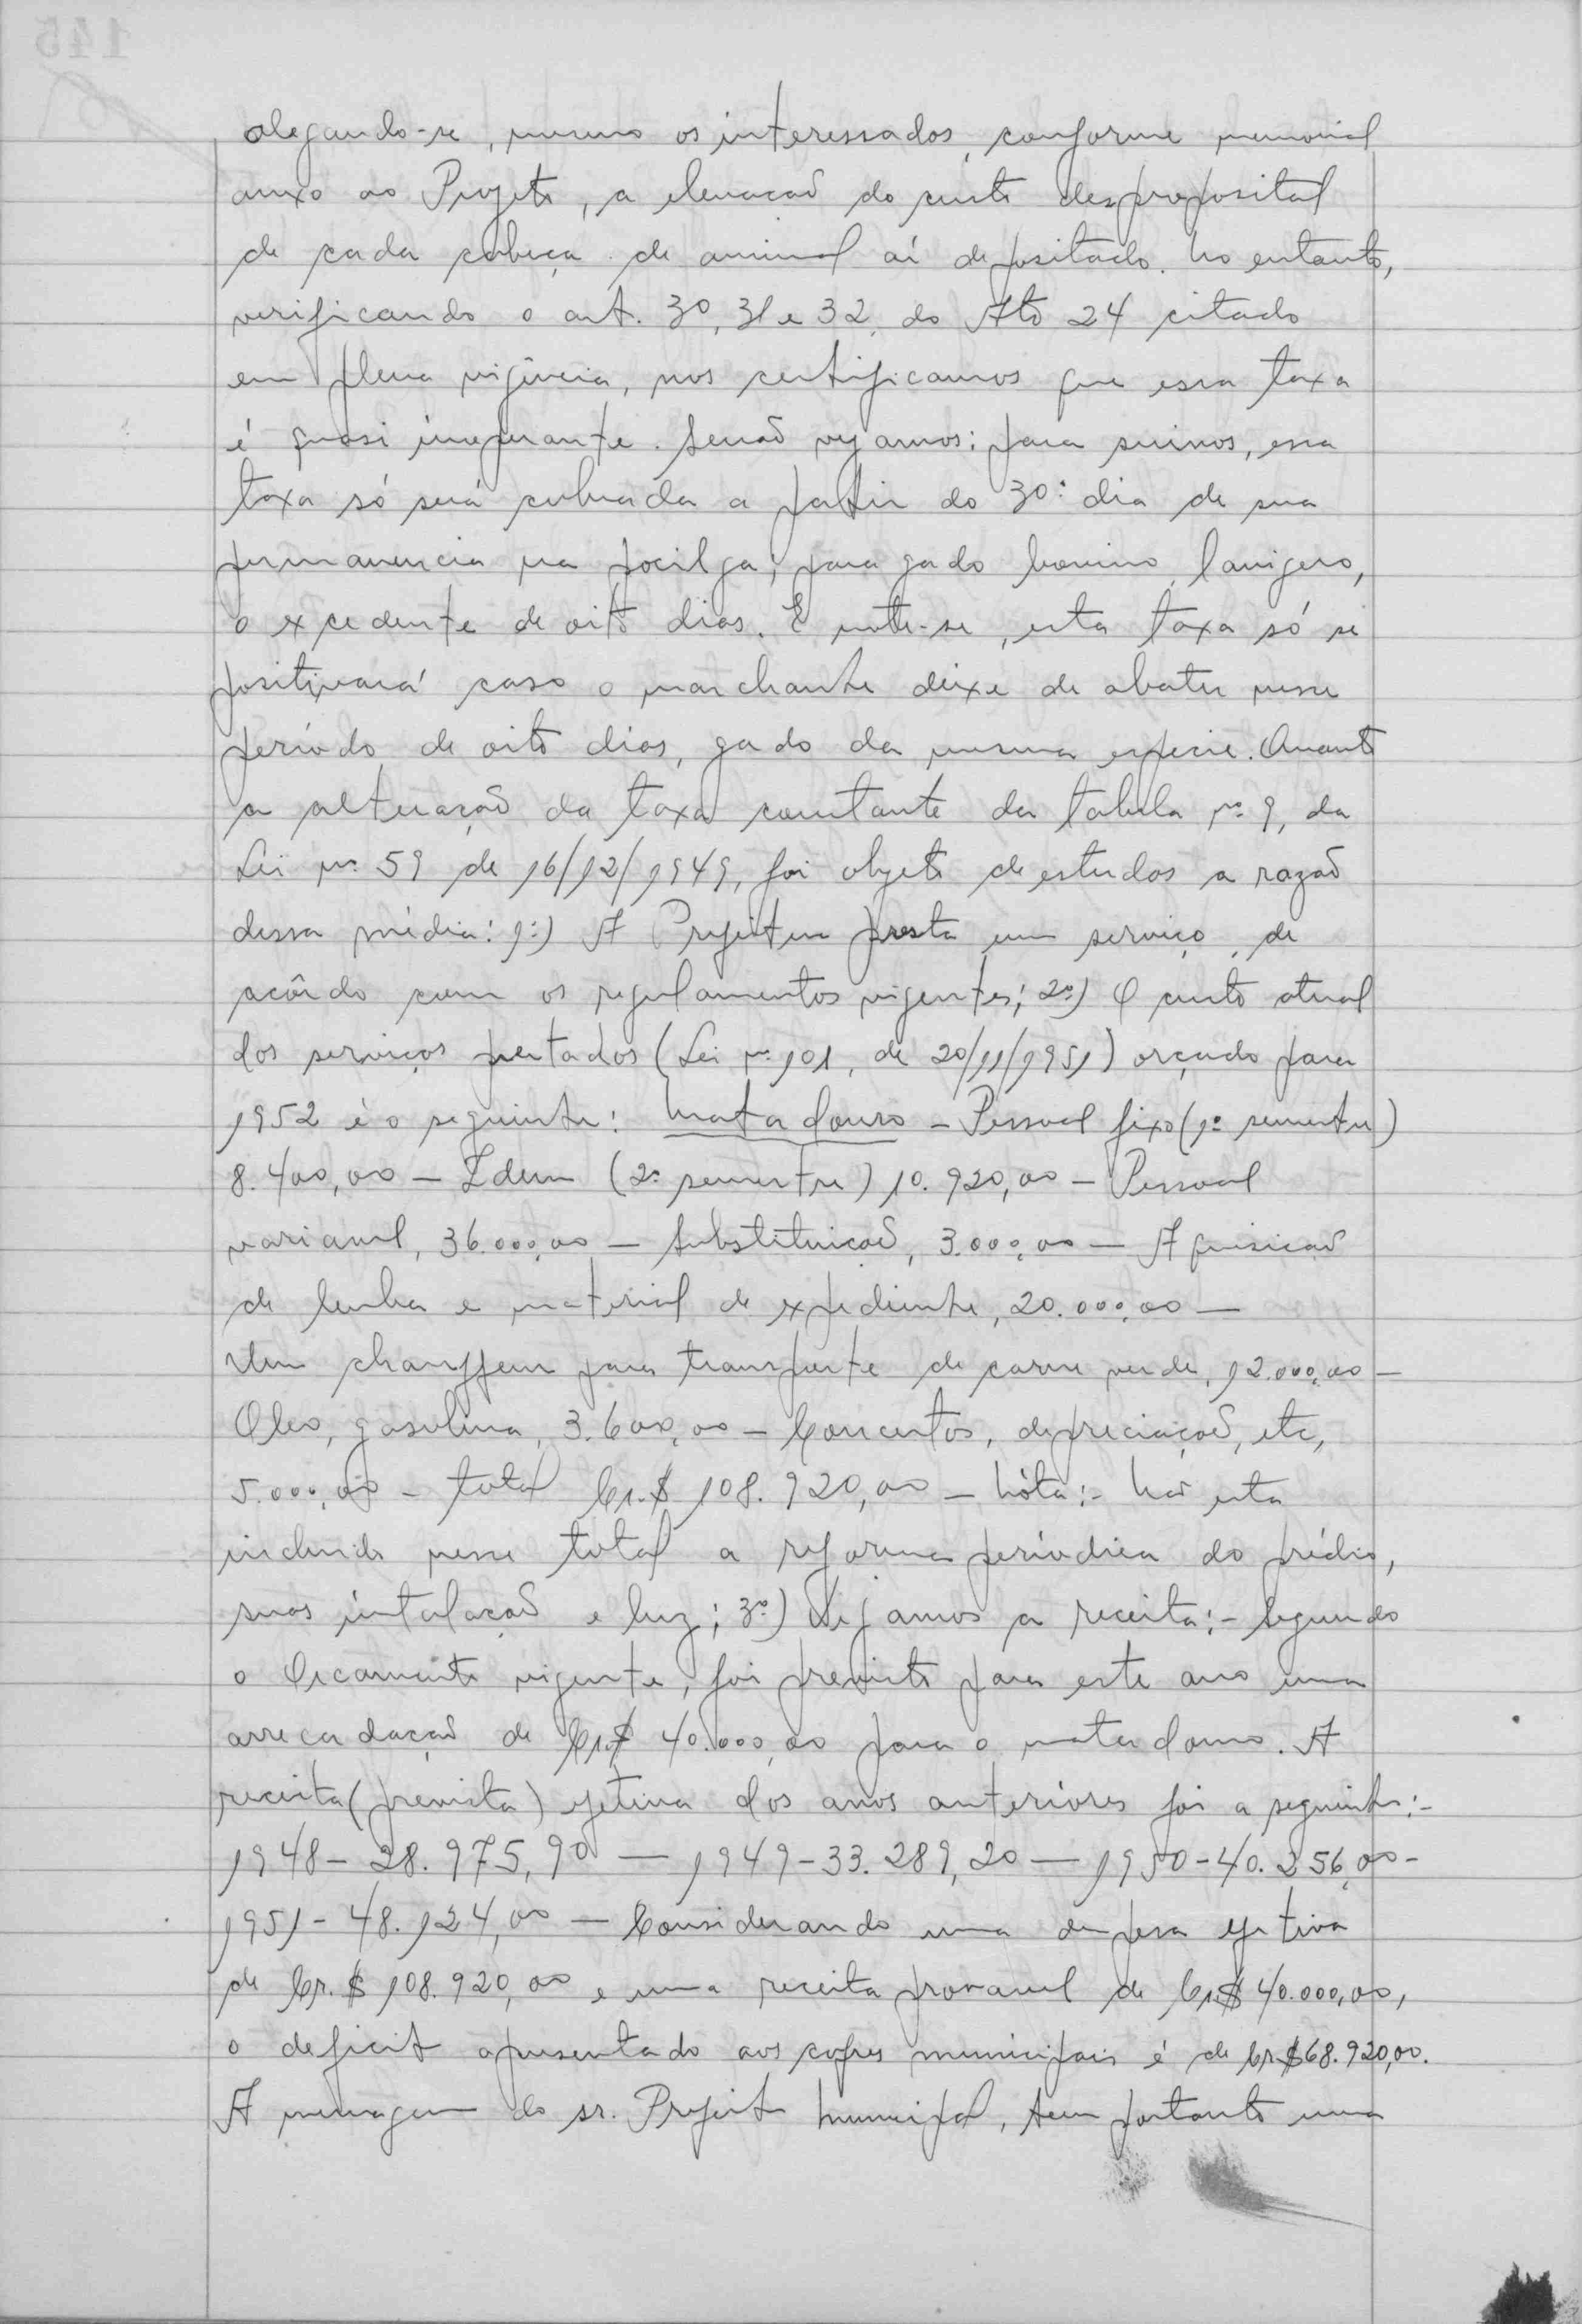 alegando-se, mesmo os interessados, conforme memorial
anexo ao Projeto, a elevacaõ do custo desproposital
de cada cabeça de animal aí depositado. No entanto,
verificando o art. 30, 31 e 32, do Ato 24 citado
em plena vigência, nos certificamos que essa taxa
é quasi inoperante. Senaõ vejamos: para suinos, essa
taxa só será cobrada a partir do 30º dia de sua
permanencia na pocilga; para gado bovino, lanigero,
o excedente de oito dias. E note-se, esta taxa só se
positivará caso o marchante deixe de abater nesse
período de oito dias, gado da mesma especie. Quanto
a alteraçaõ da taxa constante da tabela nº 9, da
Lei nº 59 de 16/12/1949, foi objeto de estudos a razaõ
dessa média: 1º) A Prefeitura presta um serviço, de
acôrdo com os regulamentos vigentes; 2º) O custo atual
dos serviços prestados (Lei nº 101, de 20/11/1951) orçado para
1952 é o seguinte: Matadouro - Pessoal fixo (1º semestre)
8.400,00 - Idem (2º semestre) 10.920,00 - Pessoal
variavel, 36.000,00 - Substituicaõ, 3.000,00 - Aquisicaõ
de lenha e material de expediente, 20.000,00 -
Um chauffeur para transporte de carne verde, 12.000,00 -
Oleo, gasolina, 3.600,00 - Concertos, depreciaçaõ, etc,
5.000,00 - total Cr.$ 108.920,00 - Nóta:- Naõ esta
incluido nesse total a reforma períodica do prédio,
suas intalaçaõ e luz; 3º) Vejamos a receita:- Segundo
o Orcamento vigente, foi previsto para este ano uma
arrecadaçaõ de Cr.$ 40.000,00 para o matadouro. A
receita (prevista) efetiva dos anos anteriores foi a seguinte:-
1948 - 28.975,90 - 1949 - 33.289,20 - 1950 - 40.256,00 -
1951 - 48.124,00 - Considerando uma despesa efetiva
de Cr.$ 108.920,00 e uma receita provavel de Cr.$ 40.000,00,
o deficit apresentado aos cofres municipais é de Cr.$ 68.920,00.
A mensagem do sr. Prefeito Municipal, tem portanto uma